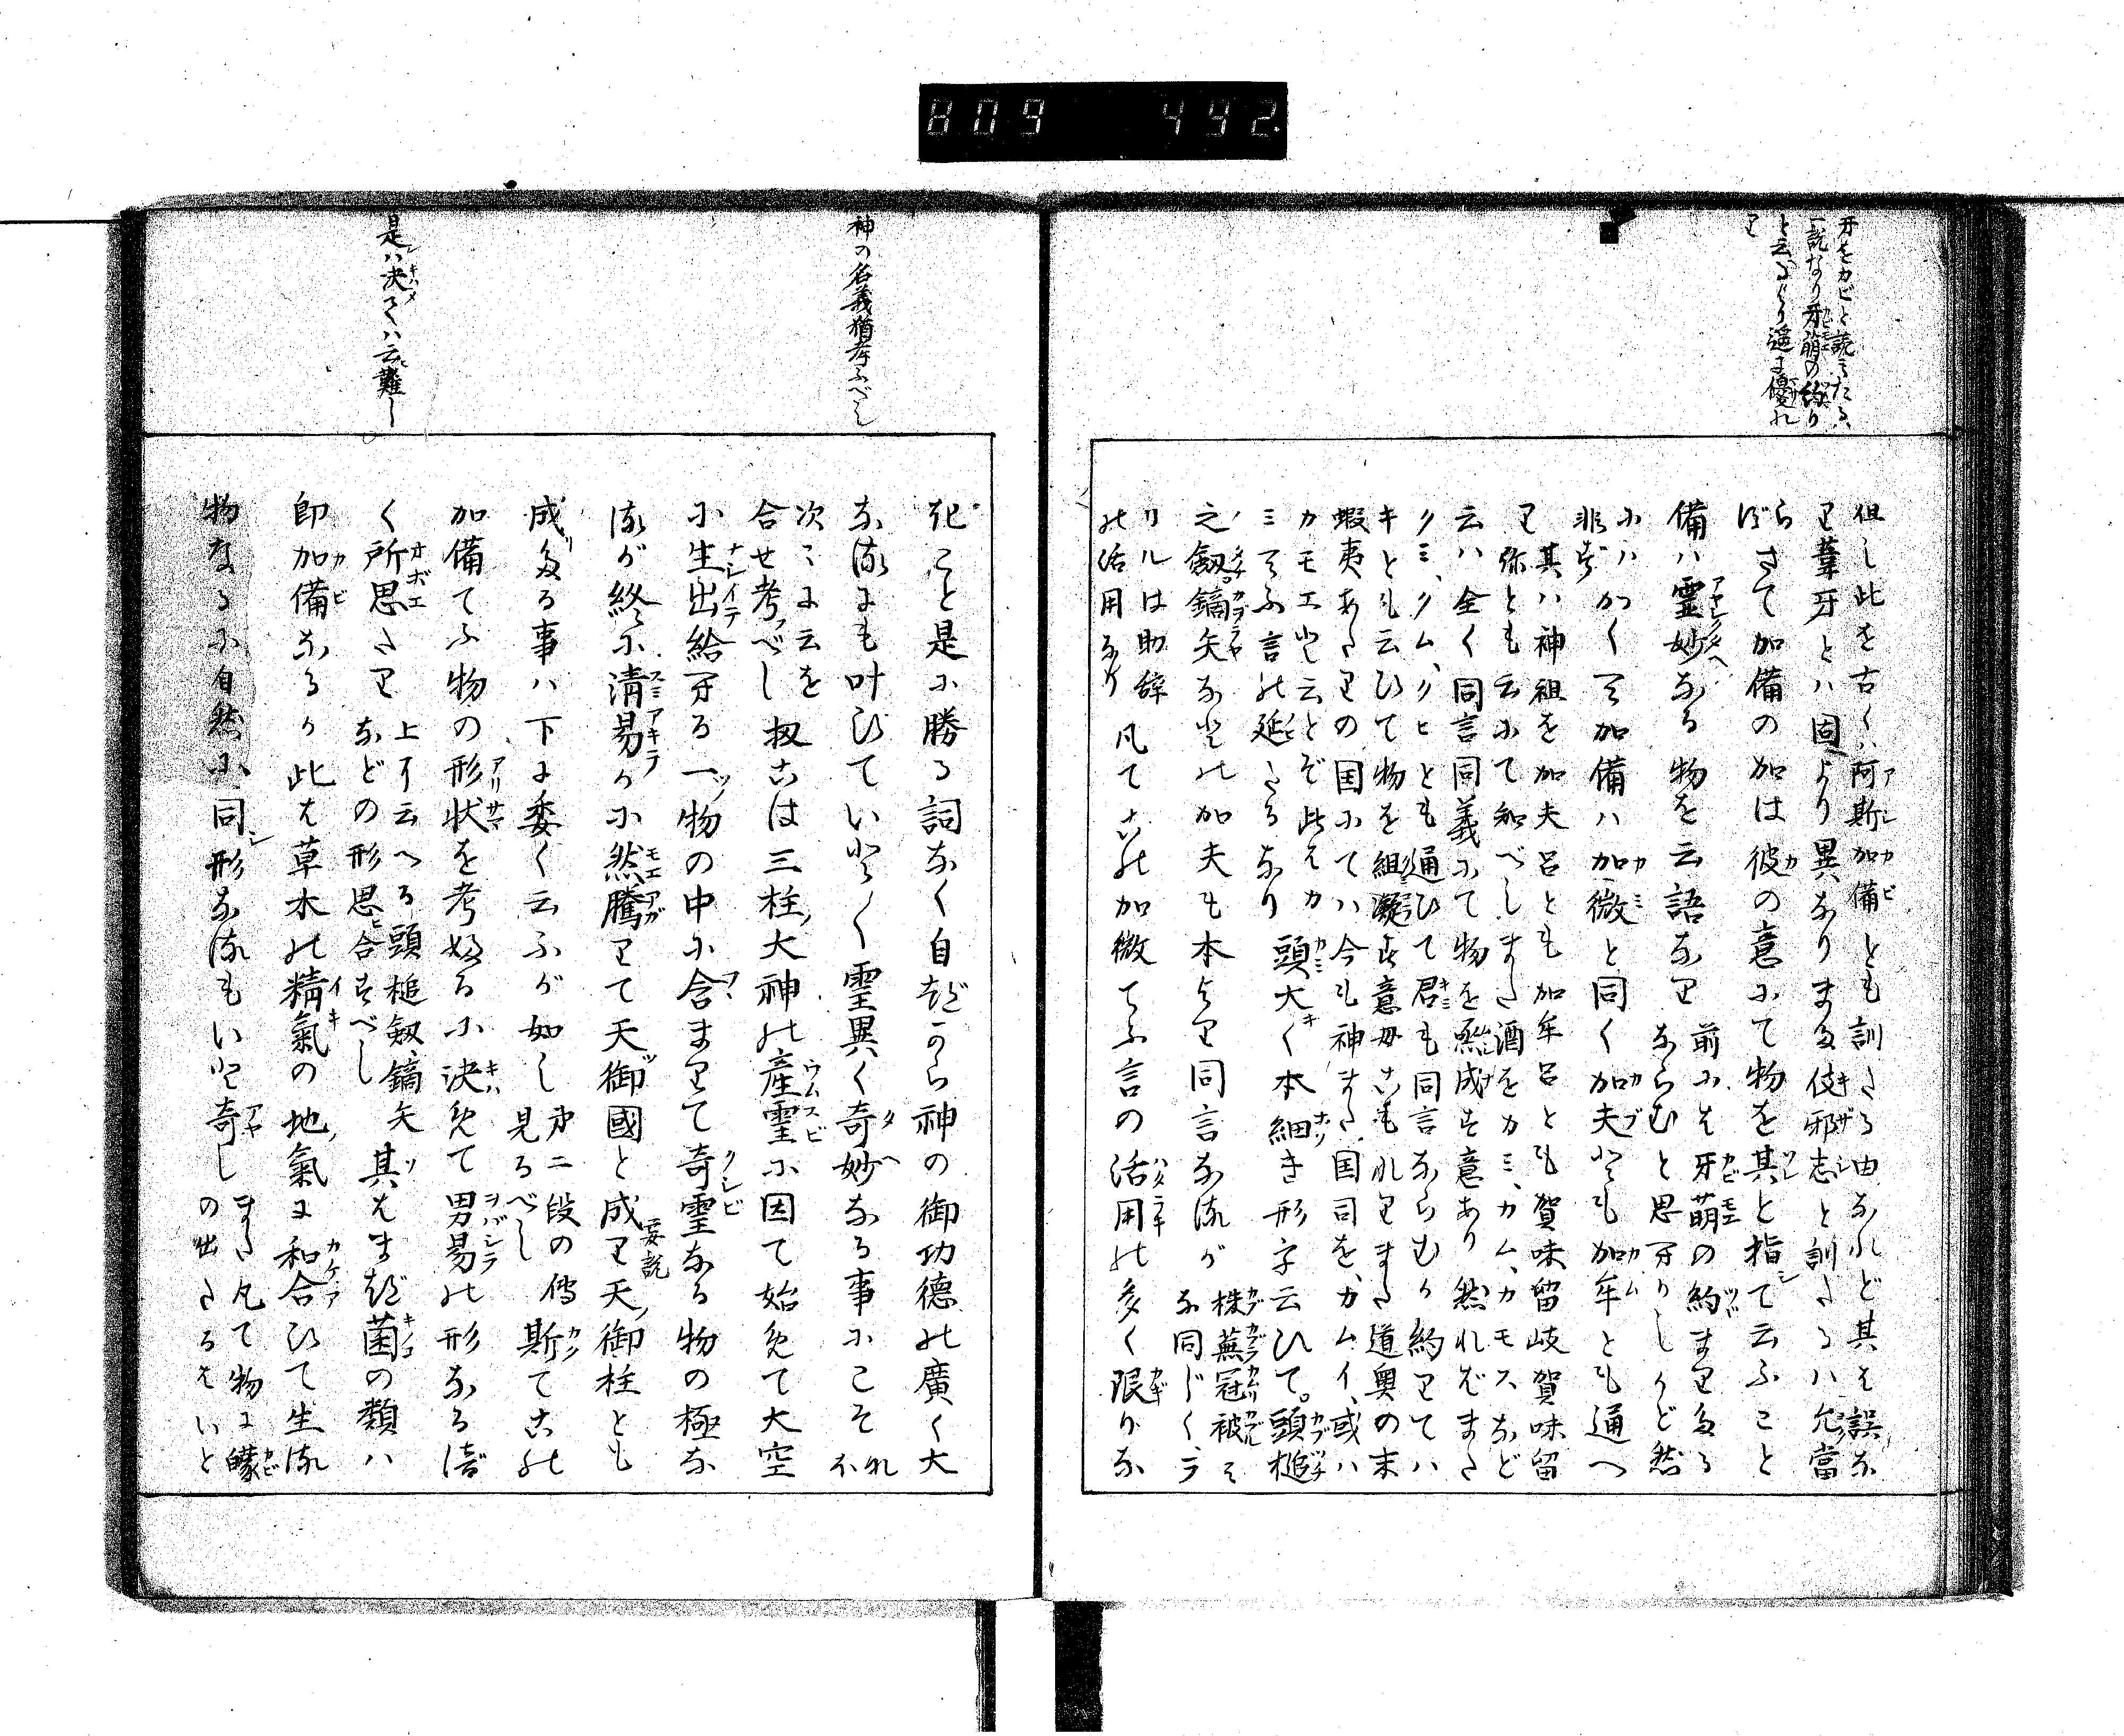 809 442.
牙をカビと読るたる、
一説なり牙萌の約り
と云るより遥に優れ
り
但し此を古く阿斯加備とも訓たる由なれど其は誤な
り葦牙とハ固より異なりまた伎邪志と訓たるハ允當
らずさて加備の加は彼の意にて物を其と指て云ふこと
備ハ霊妙なる物を云語なり
前には牙萌の約まりたる
ならむと思ヘりしかど然
にハ
非ず
かくて加備ハ加微と同く加夫とも加牟とも通へ
り
其ハ神祖を加夫呂とも加牟呂とも賀味留岐賀味留
弥とも云にて知べしまた酒をカミ、カム、カモスなど
云ハ全く同言同義にて物を成す意あり然れバまた
クミ、クム、クヒとも通ひて君も同言ならむか約りてハ
キとも云ひて物を組凝す意もこもれりまた道奥の末
蝦夷あたりの国にてハ今も神また国司を、カムイ、或ハ
カモエと云とぞ此はカ
ミてふ言の延たるなり
頭大く本細き形を云ひて。頭槌
之劔。鏑矢などの加夫も本より同言なるが
株蕪冠被も
な同じくラ
リルは助辞
の活用なり
凡て古の加微てふ言の活用の多く限りな
神の名義猶考ふべし
きこと是に勝る詞なく自づから神の御功徳の廣く大
なるにも叶ひていと〱霊異く奇妙なる事にこそ
次々に云を
合せ考べし
扨古は三柱大神の産霊に因て始めて大空
に生出給へる一物の中に含まりて奇霊なる物の極な
るが終に清昜かに然騰りて天御國と成り天御柱とも
要説
成たる事ハ下に委く云ふが如し
第二段の傳
見るべし
斯て古の
加備てふ物の形状を考るに決めて男昜の形なる
く所思たり
上に云へる頭槌劔、鏑矢
などの形思合すべし
其はまづ菌の類ハ
是ハ決てハ云難し
即加備なるか此は草木の精氣の地氣に和合ひて生る
物なるに自然に同形なるもいと奇し
また凡て物に
の出たるをいと